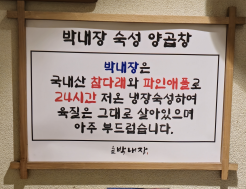 박내장 숙성 양곱창
박내장은
국내산 참다래와 파인애플로
24시간 저온 냉장숙성하여
육질은 그대로 살아있으며
아주 부드럽습니다.
박내장